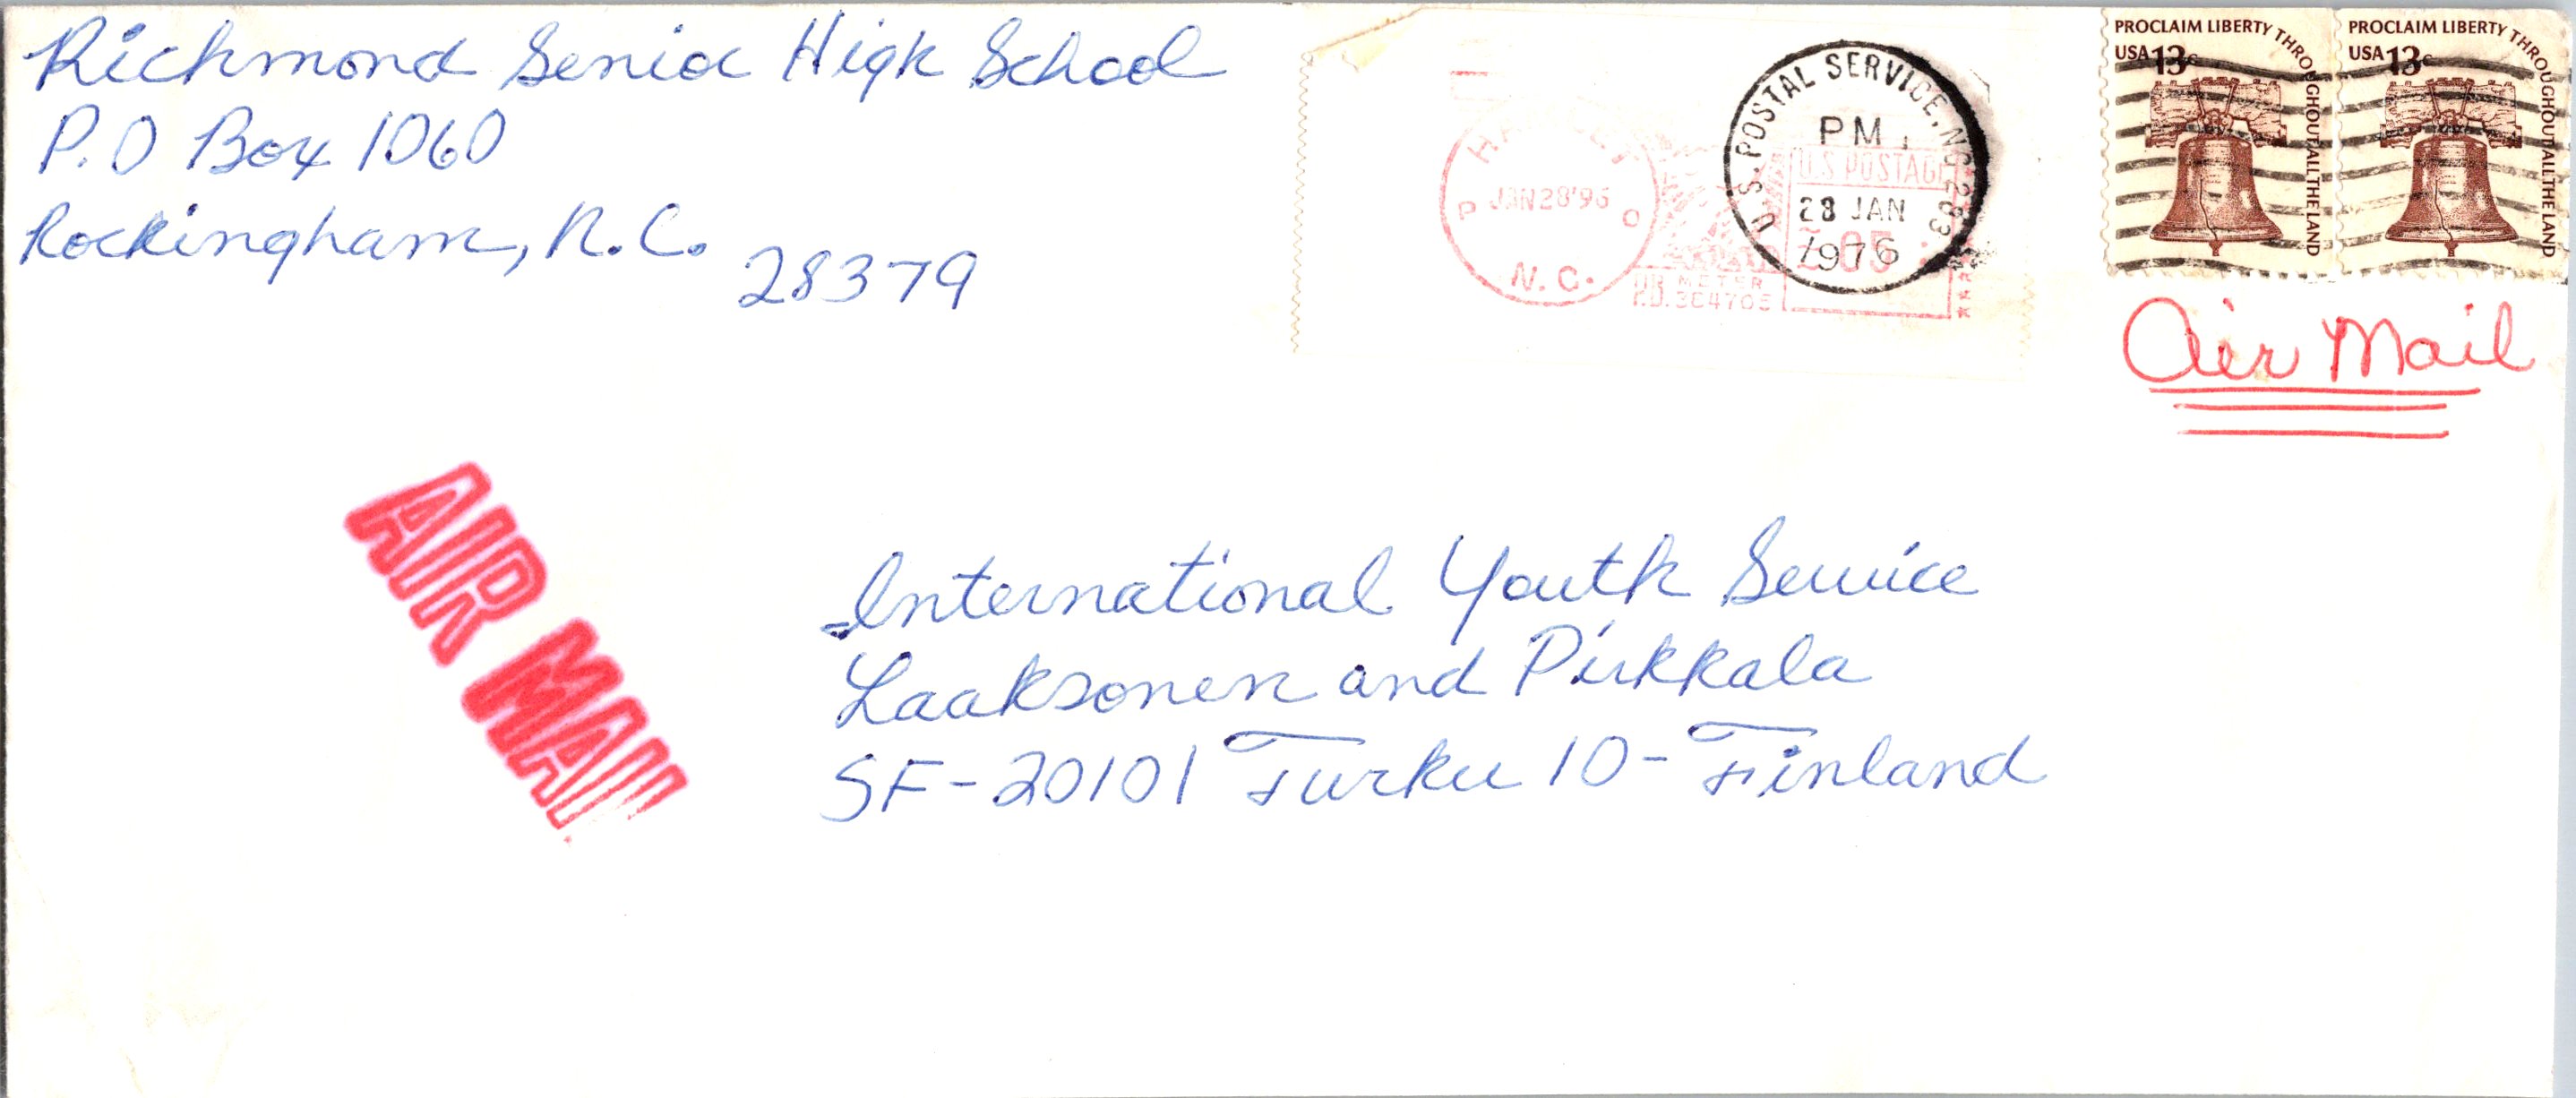 Richmond Senior High School
P.O Box 1060
Rockingham, N.C.
28379
P JAN 28 '96 O
N.C.
U.S. POSTAGE
.05
METER
U.S. POSTAL SERVICE, NC 283
PM
28 JAN
1976
PROCLAIM LIBERTY THROUGHOUT ALL THE LAND
USA 13c
PROCLAIM LIBERTY THROUGHOUT ALL THE LAND
USA 13c
Air Mail
AIR MAIL
International Youth Service
Laaksonen and Pirkkala
SF-20101 Turku 10 - Finland